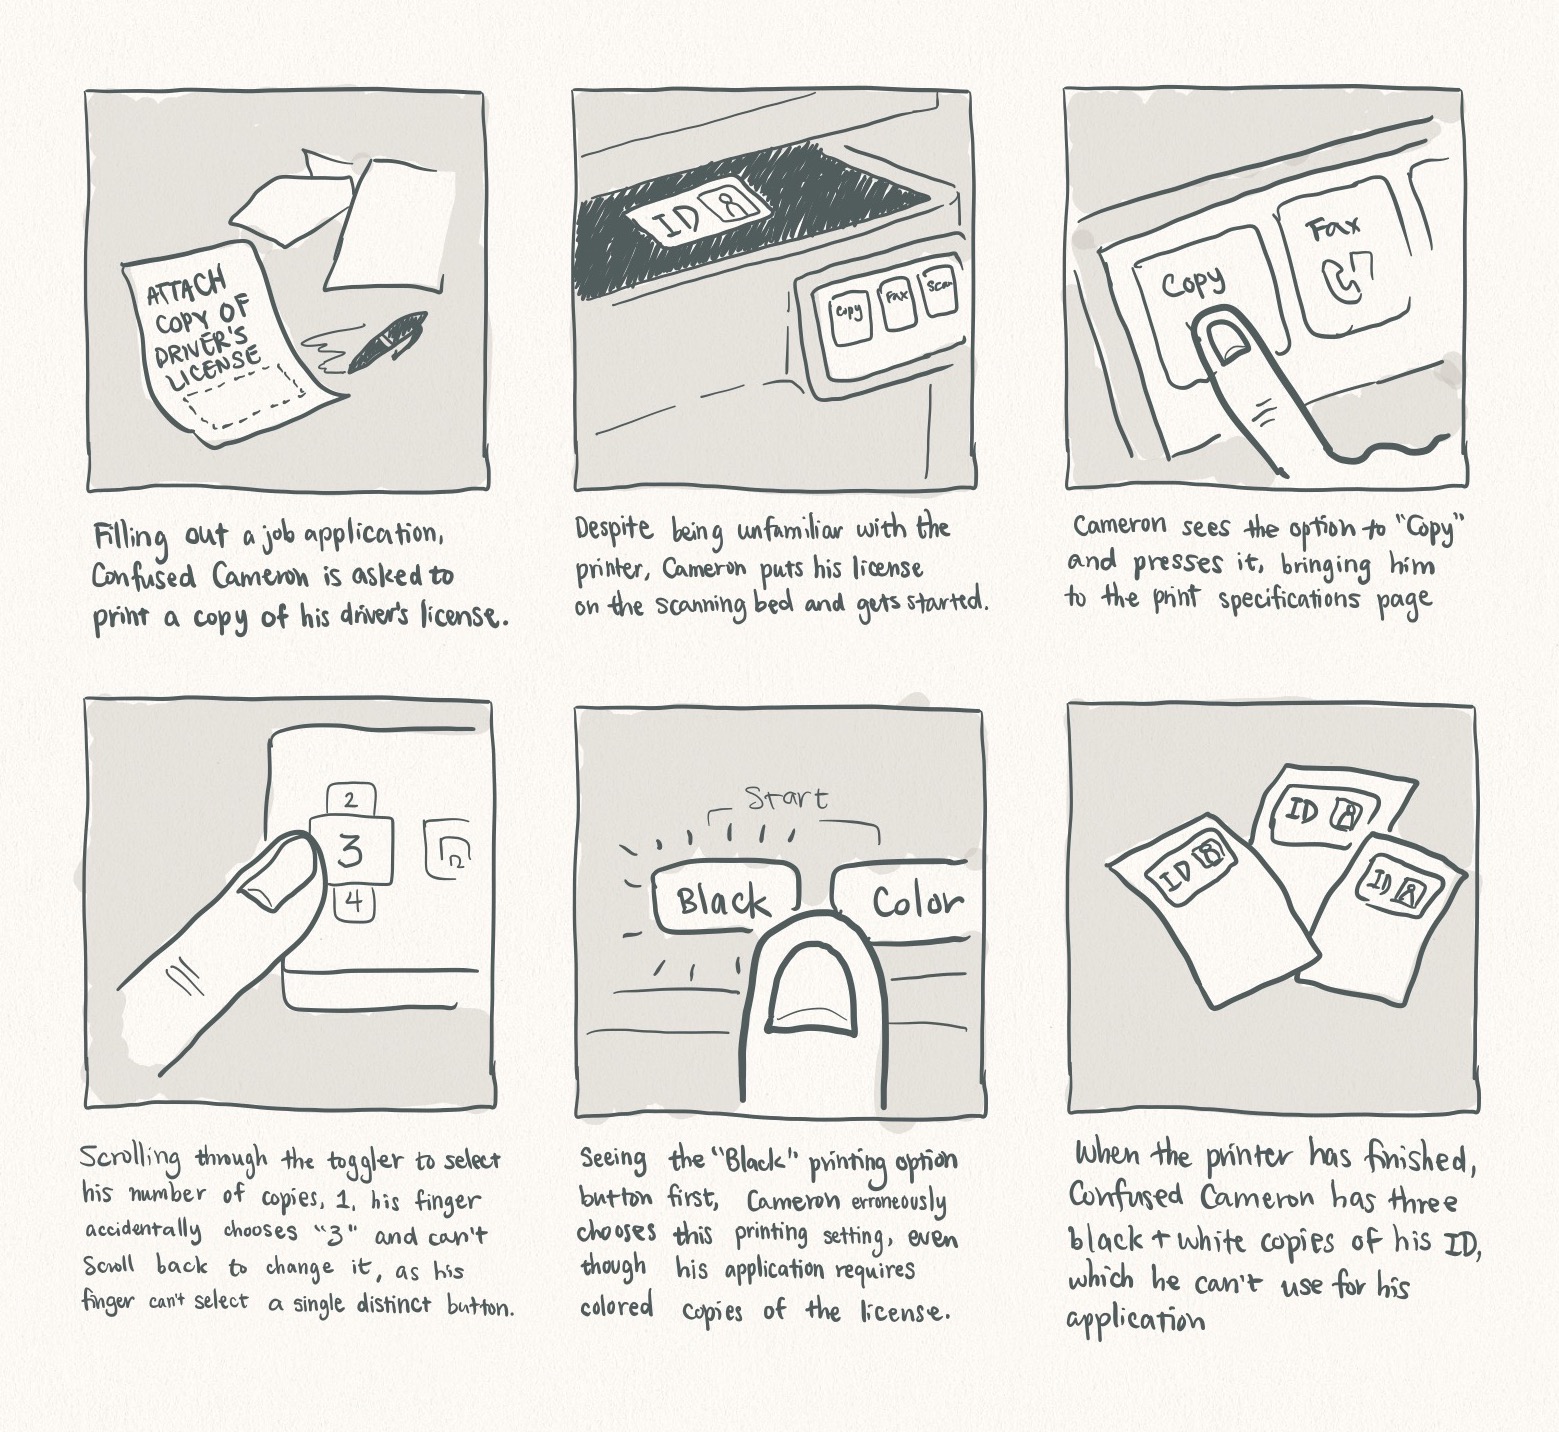 ATTACH
COPY OF
DRIVER'S
LICENSE
Filling out a job application,
Confused Cameron is asked to
print a copy of his driver's license.
ID
Copy
Fax
Scan
Despite being unfamiliar with the
printer, Cameron puts his license
on the scanning bed and gets started.
Copy
Fax
Cameron sees the option to "Copy"
and presses it, bringing him
to the print specifications page
2
3
4
Scrolling through the toggler to select
his number of copies, 1, his finger
accidentally chooses "3" and can't
Scroll back to change it, as his
finger can't select a single distinct button.
Start
Black
Color
Seeing the "Black" printing option
button first, Cameron erroneously
chooses this printing setting, even
though his application requires
colored copies of the license.
ID
ID
ID
When the printer has finished,
Confused Cameron has three
black + white copies of his ID,
which he can't use for his
application